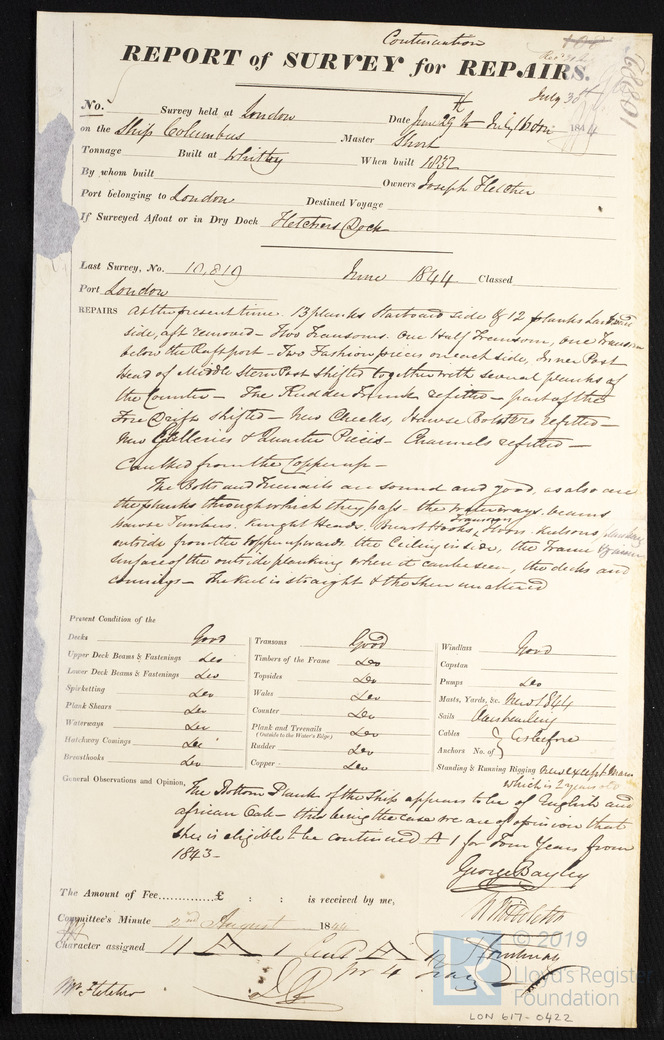 Continuation
REPORT of SURVEY for REPAIRS.
10801
July 30th
No. Survey held at London Date June 29th to July 16th 1844
on the Ship Columbus Master Short
Tonnage Built at Whitby When built 1832
By whom built Owners Joseph Fletcher
Port belonging to London Destined Voyage
If Surveyed Afloat or in Dry Dock Fletchers Dock
Last Survey, No. 10,819 June 1844 Classed
Port London
REPAIRS At the present time. 13 planks Starboard side & 12 planks Larboard
side, aft removed - Two Transoms. One Half Transom, one Transom
below the Raft port - Two Fashion pieces on each side, Inner Post
head of Middle Stern Post shifted together with several planks of
the Counter - The Rudder Trunk refitted - part of the
Fore Drift shifted - New Cheeks, Hawse Bolsters refitted -
New Galleries & Quarter Pieces - Channels refitted -
Caulked from the Copper up -
The Bolts and Treenails are sound and good, as also are
the planks through which they pass - the waterways, beams
Hawse Timbers. Knight Heads, Breast Hooks, Transoms, Floors. Keelsons,
outside from the Copper upwards. the Ceiling inside, the Frame
surface of the outside planking where it can be seen, the decks and
comings - The Keel is straight & the Sheer unaltered
Present Condition of the
Decks Good
Upper Deck Beams & Fastenings Do
Lower Deck Beams & Fastenings Do
Spirketting Do
Plank Shears Do
Waterways Do
Hatchway Comings Do
Breasthooks Do
Transoms Good
Timbers of the Frame Do
Topsides Do
Wales Do
Counter Do
Plank and Treenails Do
(Outside to the Water's Edge.)
Rudder Do
Copper Do
Windlass Good
Capstan
Pumps Do
Masts, Yards, &c. New 1844
Sails
Cables
Anchors No. of } as before
Standing & Running Rigging New except
which is 2 years old
General Observations and Opinion, The Bottom Plank of the Ship appears to be of English and
African Oak - this being the case we are of opinion that
she is eligible to be continued A 1 for Four Years from
1843 -
George Bayley
The Amount of Fee..............£ : : is received by me,
Committee's Minute 2nd August 1844
Character assigned A 1 Cont A
for 4 Years
Mr Fletcher
© 2019
LR
Lloyd's Register
Foundation
LON 617-0422